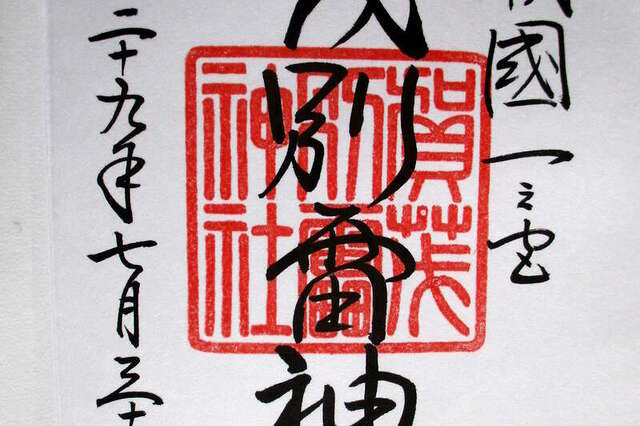 國一之宮
別雷神
賀茂
別雷
神社
二十九年七月三十